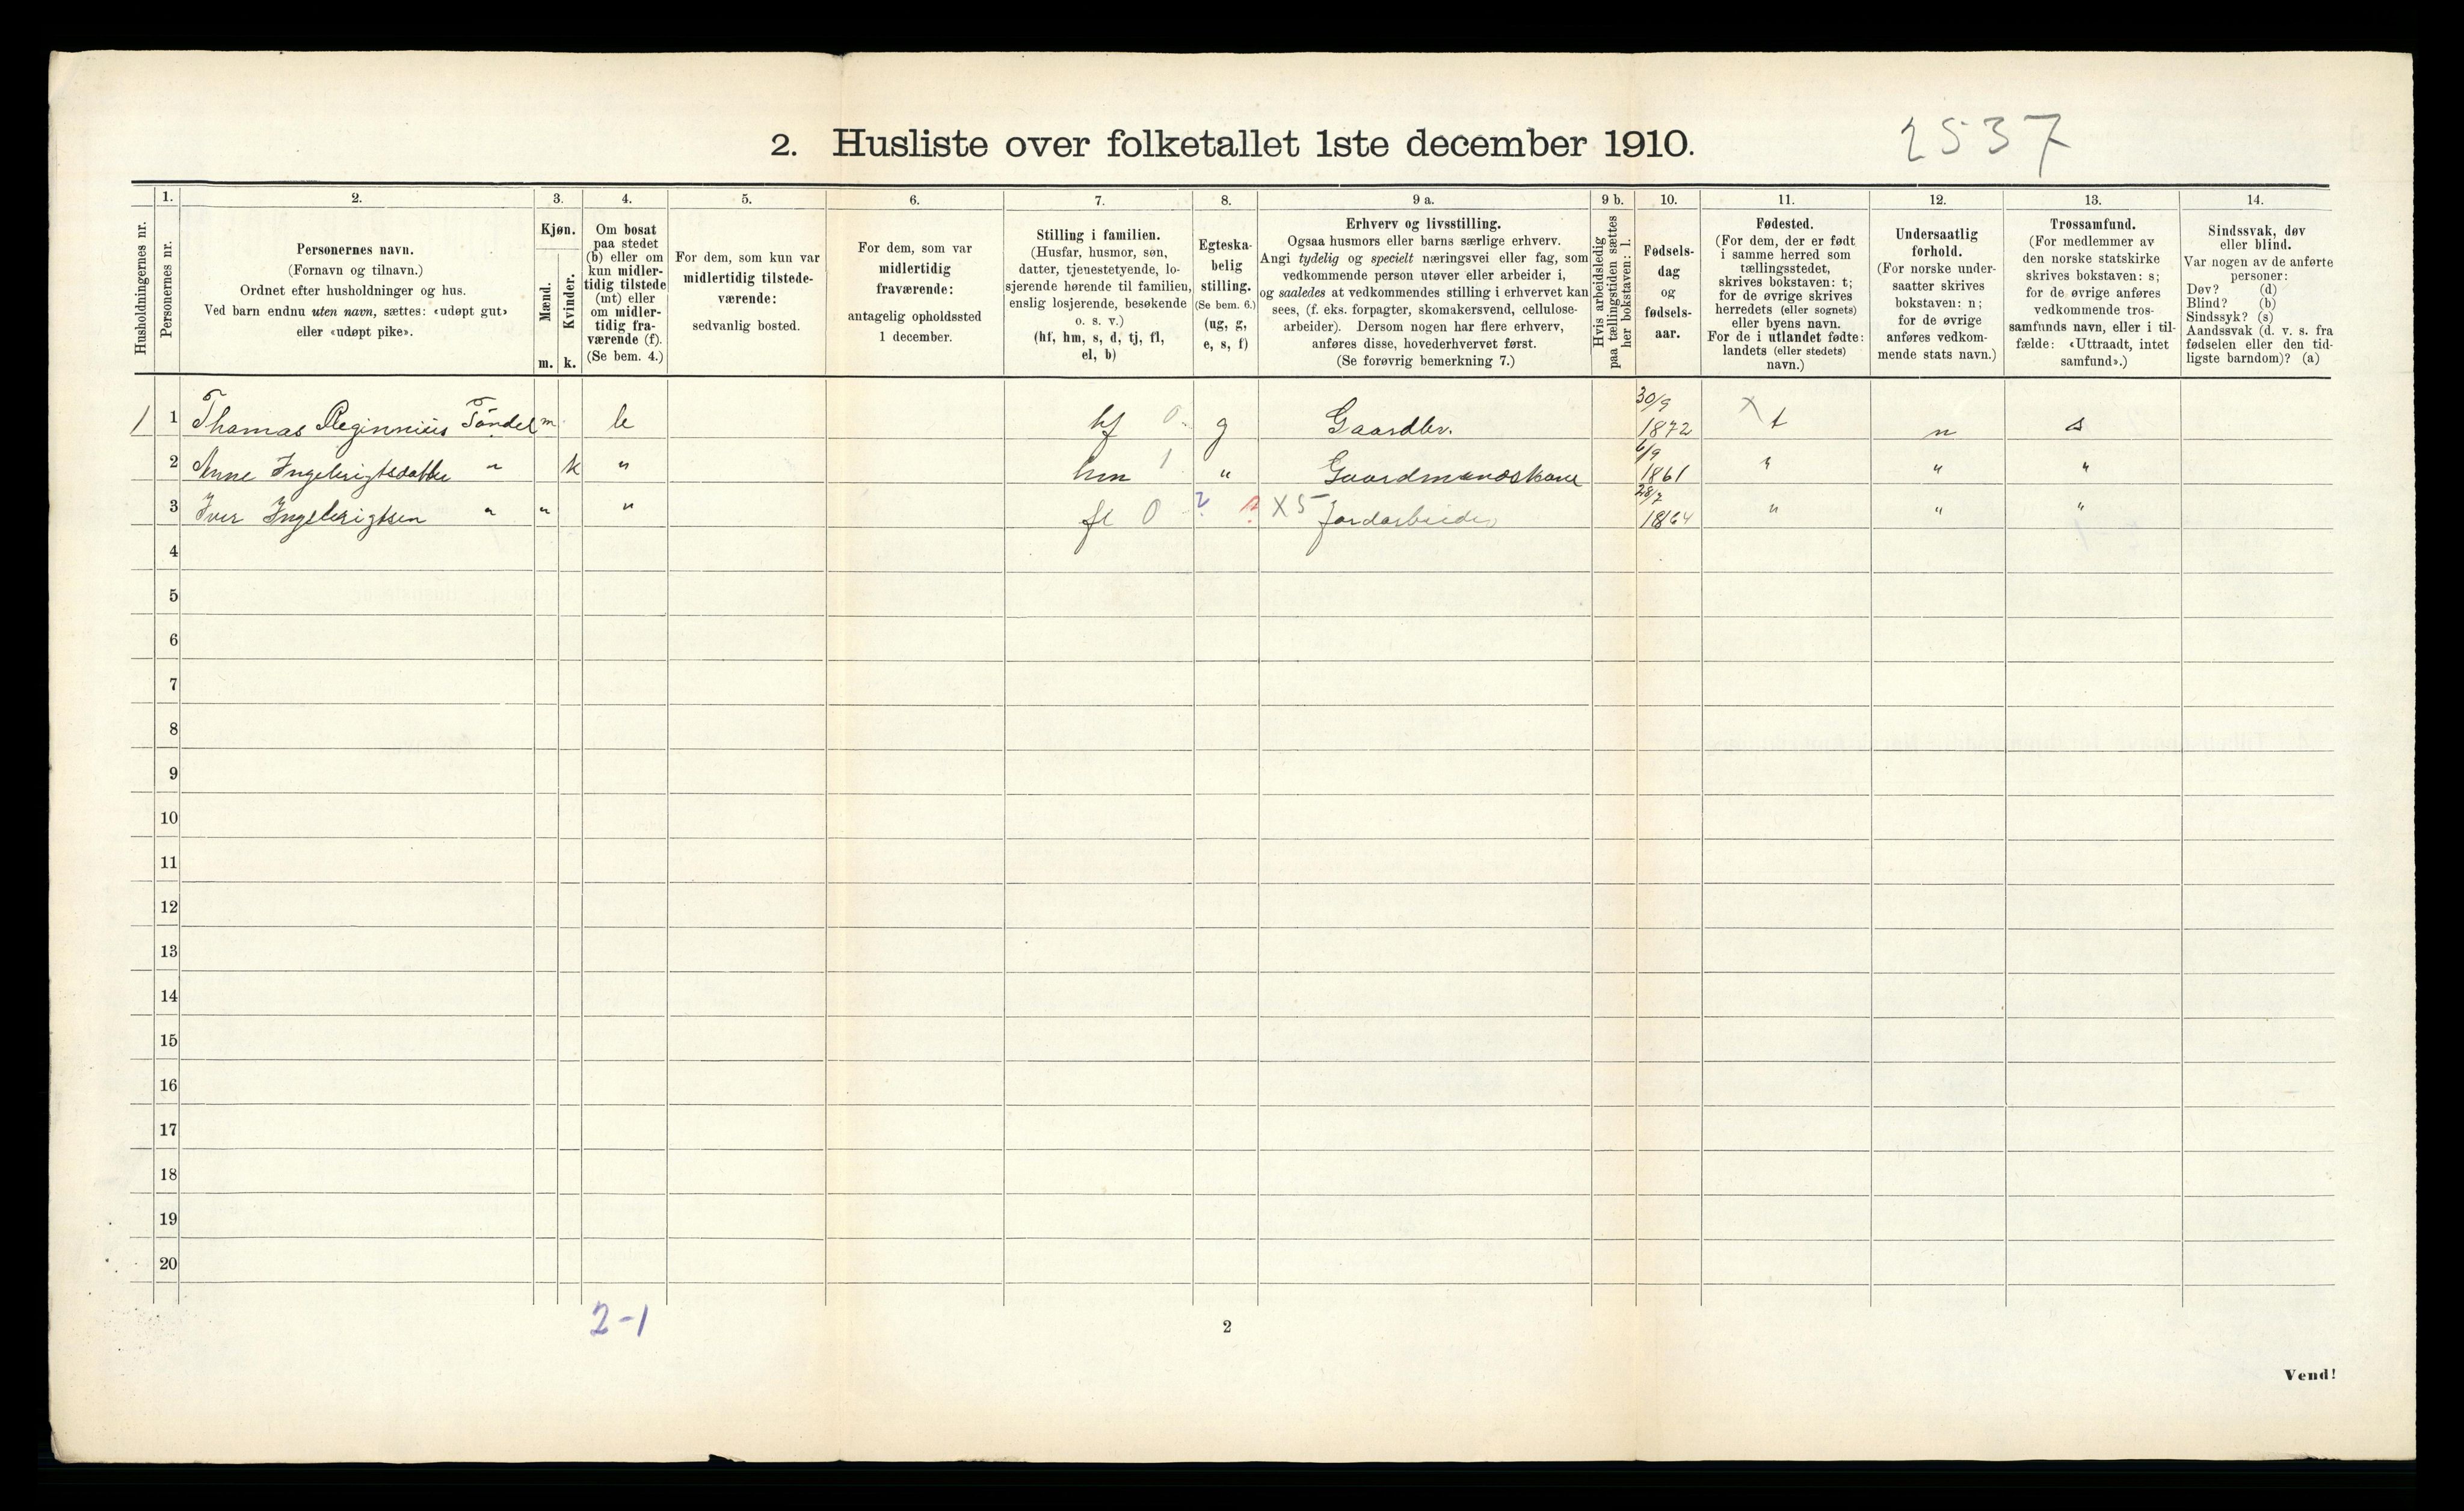 2. Husliste over folketallet 1ste december 1910.
2537
Husholdningernes nr.
1.
Personernes nr.
2.
Personernes navn.
(Fornavn og tilnavn.)
Ordnet efter husholdninger og hus.
Ved barn endnu uten navn, sættes: «udøpt gut»
eller «udøpt pike».
3.
Kjøn.
Mænd.
m.
Kvinder.
k.
4.
Om bosat
paa stedet
(b) eller om
kun midler-
tidig tilstede
(mt) eller
om midler-
tidig fra-
værende (f).
(Se bem. 4.)
5.
For dem, som kun var
midlertidig tilstede-
værende:
sedvanlig bosted.
6.
For dem, som var
midlertidig
fraværende:
antagelig opholdssted
1 december.
7.
Stilling i familien.
(Husfar, husmor, søn,
datter, tjenestetyende, lo-
sjerende hørende til familien,
enslig losjerende, besøkende
o. s. v.)
(hf, hm, s, d, tj, fl,
el, b)
8.
Egteska-
belig
stilling.
(Se bem. 6.)
(ug, g,
e, s, f)
9 a.
Erhverv og livsstilling.
Ogsaa husmors eller barns særlige erhverv.
Angi tydelig og specielt næringsvei eller fag, som
vedkommende person utøver eller arbeider i,
og saaledes at vedkommendes stilling i erhvervet kan
sees, (f. eks. forpagter, skomakersvend, cellulose-
arbeider). Dersom nogen har flere erhverv,
anføres disse, hovederhvervet først.
(Se forøvrig bemerkning 7.)
9 b.
Hvis arbeidsledig
paa tællingstiden sættes
her bokstaven: l.
10.
Fødsels-
dag
og
fødsels-
aar.
11.
Fødested.
(For dem, der er født
i samme herred som
tællingsstedet,
skrives bokstaven: t;
for de øvrige skrives
herredets (eller sognets)
eller byens navn.
For de i utlandet fødte:
landets (eller stedets)
navn.)
12.
Undersaatlig
forhold.
(For norske under-
saatter skrives
bokstaven: n;
for de øvrige
anføres vedkom-
mende stats navn.)
13.
Trossamfund.
(For medlemmer av
den norske statskirke
skrives bokstaven: s;
for de øvrige anføres
vedkommende tros-
samfunds navn, eller i til-
fælde: «Uttraadt, intet
samfund».)
14.
Sindssvak, døv
eller blind.
Var nogen av de anførte
personer:
Døv? (d)
Blind? (b)
Sindssyk? (s)
Aandssvak (d. v. s. fra
fødselen eller den tid-
ligste barndom)? (a)
1 1 Thomas Reginnius Töndel m b hf 0 g Gaardbr. 30/9 1872 X t n s
2 Anne Ingebrigtsdatter " k " hm 1 " Gaardmandskone 6/9 1861 " " "
3 Iver Ingebrigtsen " " " fl 0 ? X5 Jordarbeider 28/7 1864 " " "
4
5
6
7
8
9
10
11
12
13
14
15
16
17
18
19
20
2-1
2
Vend!